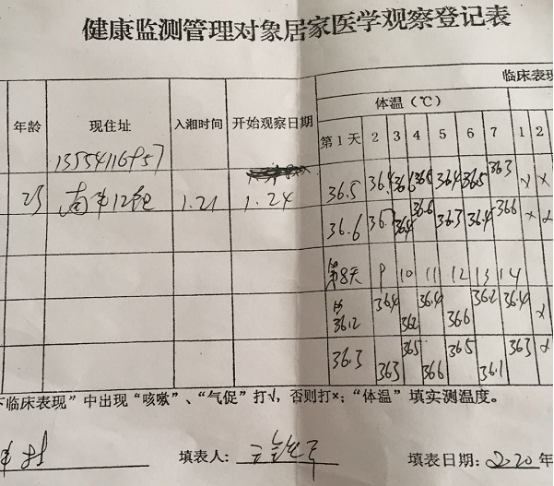 健康监测管理对象居家医学观察登记表
临床表现
体温（℃）
年龄 现住址 入湘时间 开始观察日期 第1天 2 3 4 5 6 7 1 2
13554116957
36.5 36.4 36.6 36.4 36.5 36.3 x x
25 12组 1.21 1.24
36.6 36.7 36.4 36.6 36.3 36.4 36.6 x x
第8天 9 10 11 12 13 14
36.2 36.4 36.2 36.4 36.6 36.2 36.4 x
36.3 36.3 36.5 36.6 36.5 36.1 36.3 x
下临床表现”中出现“咳嗽”、“气促”打√，否则打×；“体温”填实测温度。
村 填表人： 填表日期：2020年